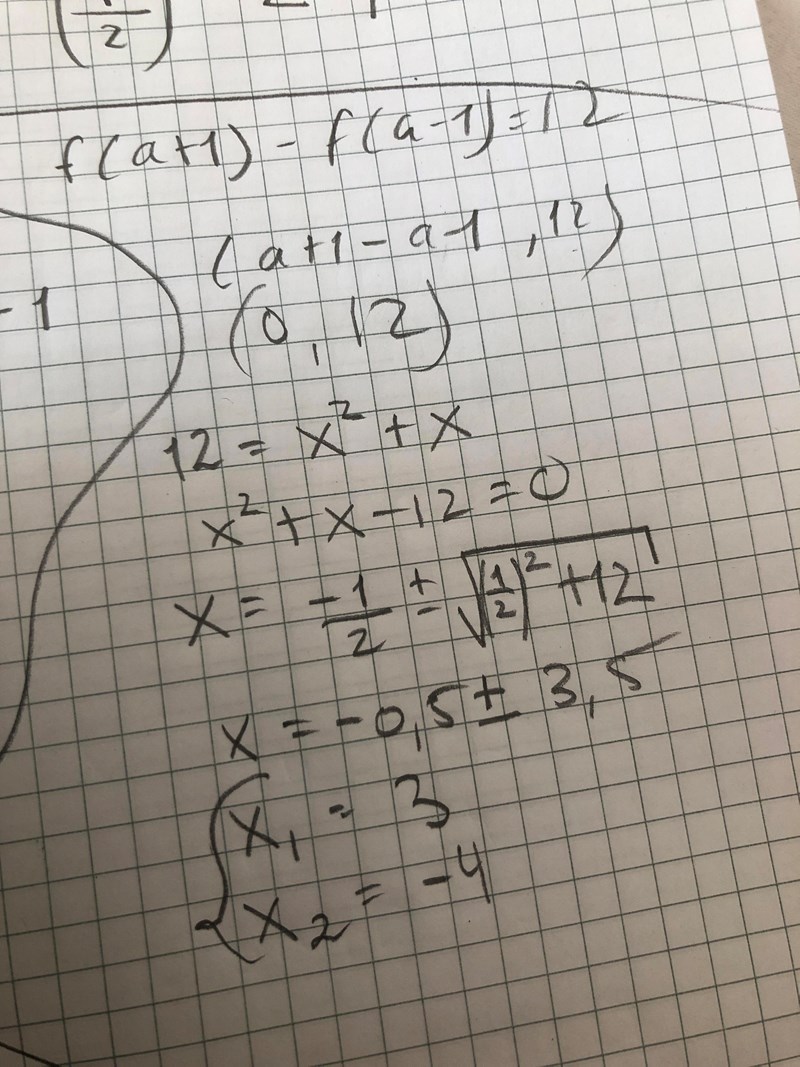 (1/2)
f(a+1) - f(a-1) = 12
(a+1-a-1, 12)
-1
(0, 12)
12 = x² + x
x² + x - 12 = 0
x = -1/2 ± √((1/2)² + 12)
x = -0,5 ± 3,5
x₁ = 3
x₂ = -4